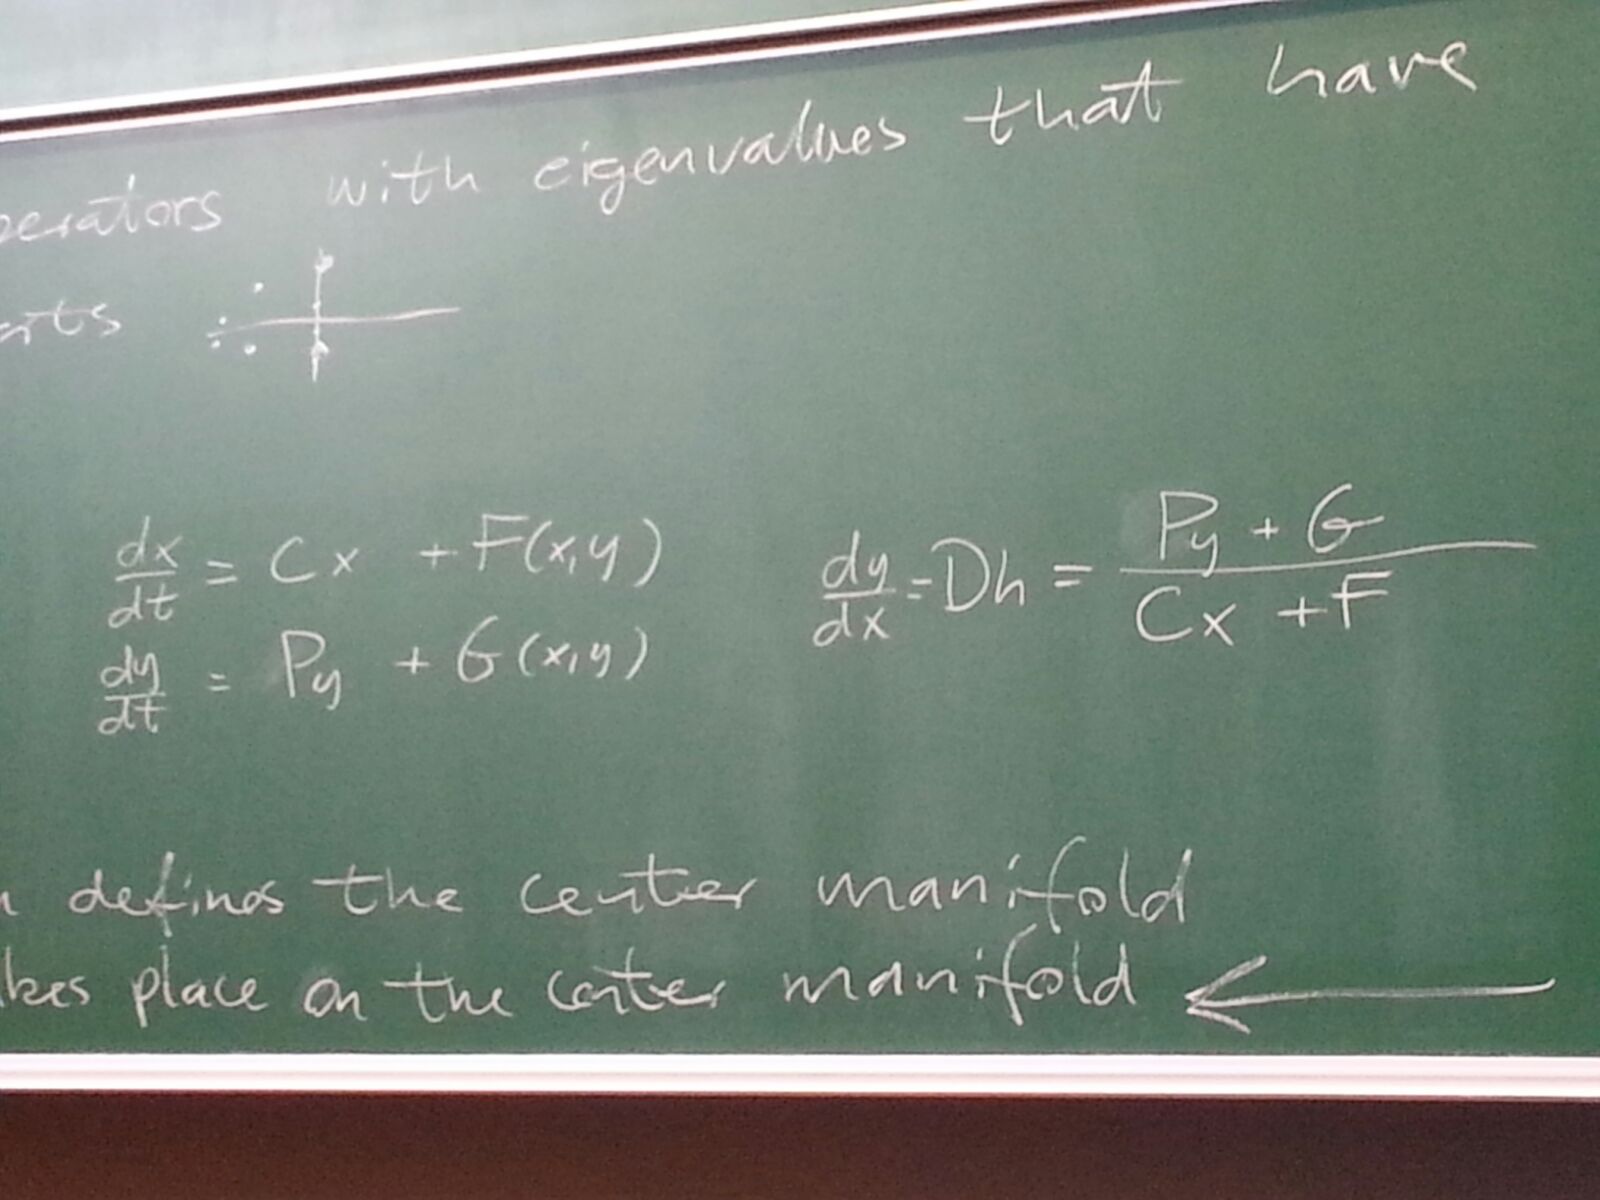 perators with eigenvalues that have
arts
dx/dt = Cx + F(x,y)
dy/dt = Py + G(x,y)
dy/dx = Dh = (Py + G)/(Cx + F)
defines the center manifold
akes place on the center manifold ←